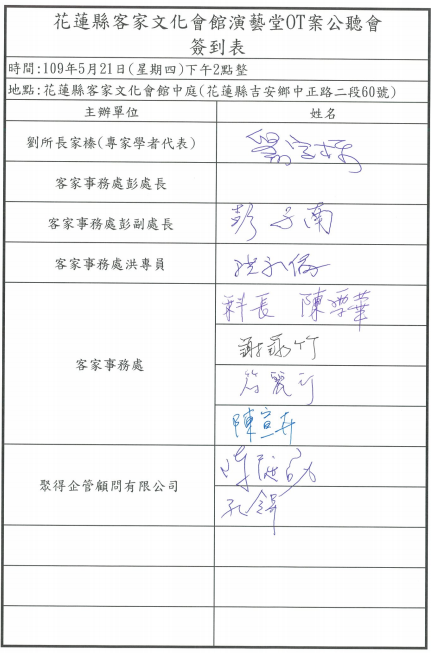 花蓮縣客家文化會館演藝堂OT案公聽會
簽到表
時間:109年5月21日(星期四)下午2點整
地點:花蓮縣客家文化會館中庭(花蓮縣吉安鄉中正路二段60號)
主辦單位 姓名
劉所長家榛(專家學者代表) 劉家榛
客家事務處彭處長
客家事務處彭副處長 彭子南
客家事務處洪專員 洪
客家事務處 科長 陳雲華
謝
麗
陳宣卉
聚得企管顧問有限公司 陳
孔鐸